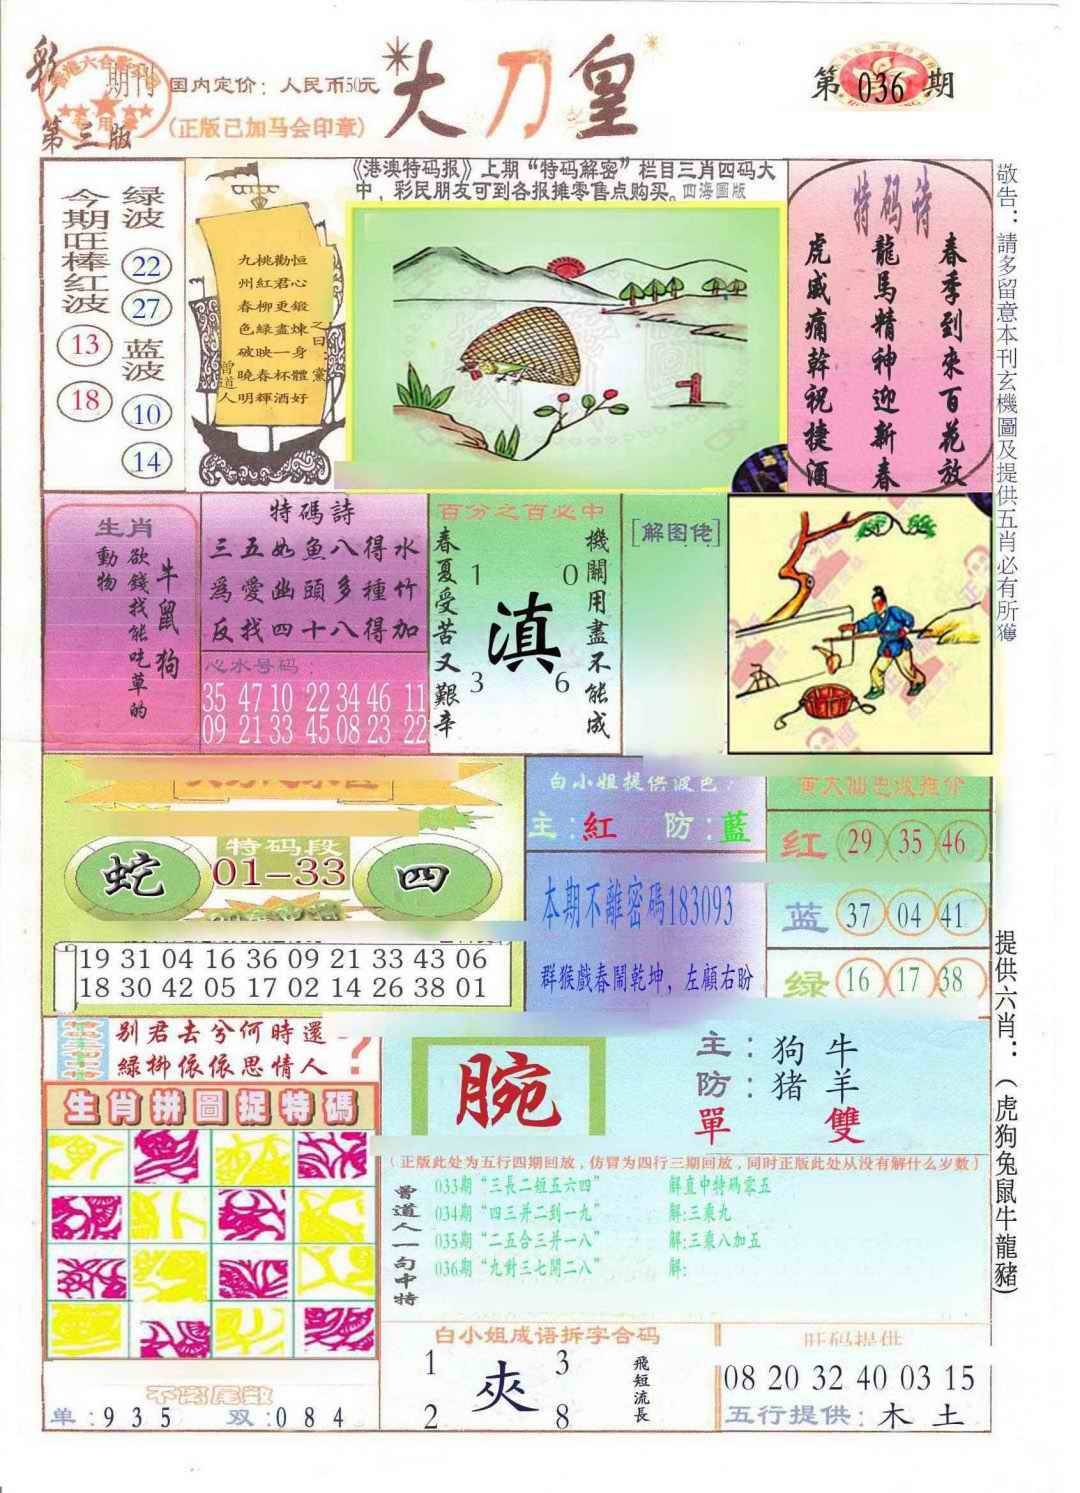 彩
期刊
第三版
国内定价：人民币50元
(正版已加马会印章)
大刀皇
第036期
今期旺棒红波
13
18
绿波
22
27
蓝波
10
14
恒心鍛煉身體好
勸君更盡一杯酒
桃紅柳綠映春輝
九州春色破曉明
之曰：黨
曾道人
《港澳特码报》上期“特码解密”栏目三肖四码大
中，彩民朋友可到各报摊零售点购买。四海圖版
特码诗
春季到來百花放
龍馬精神迎新春
虎威痛幹祝捷酒
敬告：請多留意本刊玄機圖及提供五肖必有所獲
生肖
牛鼠狗
欲錢找能吃草的
動物
特碼詩
三五如魚八得水
為愛幽頭多種竹
反找四十八得加
心水号码：
35 47 10 22 34 46 11
09 21 33 45 08 23 22
百分之百必中
機關用盡不能成
春夏受苦又艱辛
1 0
滇
3 6
[解图佬]
蛇
特码段
01-33
四
19 31 04 16 36 09 21 33 43 06
18 30 42 05 17 02 14 26 38 01
白小姐提供波色：
主：紅 防：藍
本期不離密碼183093
群猴戲春鬧乾坤，左顧右盼
黄大仙色波推介
红 29 35 46
蓝 37 04 41
绿 16 17 38
提供六肖：（虎狗兔鼠牛龍豬）
别君去兮何時還
綠柳依依思情人
?
生肖拼圖捉特碼
腕
主：狗 牛
防：猪 羊
單 雙
（正版此处为五行四期回放，仿冒为四行三期回放，同时正版此处从没有解什么岁数）
曾道人一句中特
033期“三長二短五六四” 解直中特码零五
034期“四三并二到一九” 解:三乘九
035期“二五合三并一八” 解:三乘八加五
036期“九對三七開二八” 解:
不离尾数
单:935 双:084
白小姐成语拆字合码
1 3
夾
2 8
飛短流長
旺码提供
08 20 32 40 03 15
五行提供：木 土